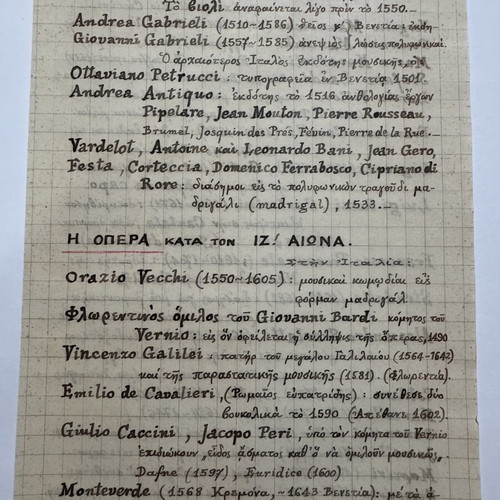 Τὸ βιολὶ ἀναφαίνεται λίγο πρὶν τὸ 1550.-
Andrea Gabrieli (1510-1586) θεῖος κ' Βενετία: ἐκδη-
Giovanni Gabrieli (1557-1585) ἀνεψιὸς λώσεις πολυφωνικαί.
Ὁ ἀρχαιότερος Ἰταλὸς ἐκδότης μουσικῆς, ὁ
Ottaviano Petrucci: τυπογραφεῖα ἐν Βενετίᾳ 1501.
Andrea Antiquo: ἐκδότης τὸ 1516 ἀνθολογίας ἔργων
Pipelare, Jean Mouton, Pierre Rousseau,
Brumel, Josquin des Prés, Févin, Pierre de la Rue.-
Vardelot, Antoine καὶ Leonardo Bani, Jean Gero,
Festa, Corteccia, Domenico Ferrabosco, Cipriano di
Rore: διάσημοι εἰς τὸ πολυφωνικὸν τραγοῦδι μα-
δριγάλι (madrigal), 1533.-
Η ΟΠΕΡΑ ΚΑΤΑ ΤΟΝ ΙΖ! ΑΙΩΝΑ.
στὴν Ἰταλία:
Orazio Vecchi (1550-1605): μουσικαὶ κωμῳδίαι εἰς
φόρμαν μαδριγάλ.
Φλωρεντινὸς ὅμιλος τοῦ Giovanni Bardi κόμητος τοῦ
Vernio: εἰς ὃν ὀφείλεται ἡ σύλληψις τῆς ὄπερας, 1490
Vincenzo Galilei: πατὴρ τοῦ μεγάλου Γαλιλαίου (1564-1642)
καὶ τῆς παραστατικῆς μουσικῆς (1581). (Φλωρεντία).
Emilio de Cavalieri, (Ρωμαῖος εὐπατρίδης): συνέθεσε δύο
βουκολικὰ τὸ 1590 (Ἀπέθανε 1602).
Giulio Caccini, Jacopo Peri, ὑπὸ τὸν κόμητα τοῦ Vernio
ἐπιδιώκουν εἶδος ᾄσματος καθ' ὃ νὰ ὁμιλοῦν μουσικῶς.
Dafne (1597), Euridice (1600)
Monteverde (1568 Κρεμόνα, -1643 Βενετία): μὲ τὰ ἀ-